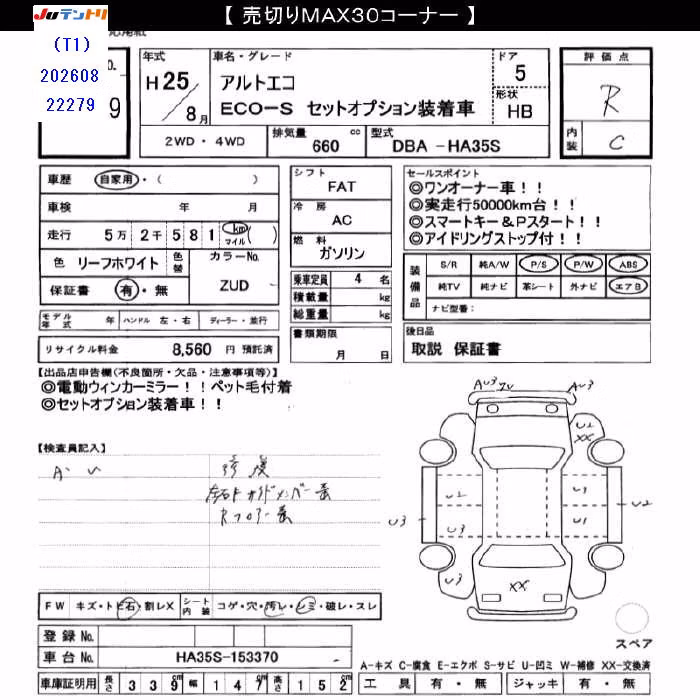 【 売切りMAX30コーナー 】
JUテントリ
(T1)
202608
22279
9
評価点
R
内装 C
年式 H25/8月
車名・グレード
アルトエコ
ECO-S セットオプション装着車
ドア 5
形状 HB
2WD・4WD
排気量 660 cc
型式 DBA -HA35S
車歴 自家用・( )
車検 年 月
走行 5万2千581 km マイル ( )
色 リーフホワイト 色替
カラーNo. ZUD
保証書 有・無
モデル年式 年 ハンドル 左・右 ディーラー・並行
リサイクル料金 8,560 円 預託済
シフト FAT
冷房 AC
燃料 ガソリン
乗車定員 4 名
積載量 kg
総重量 kg
書類期限 月 日
セールスポイント
◎ワンオーナー車!!
◎実走行50000km台!!
◎スマートキー&Pスタート!!
◎アイドリングストップ付!!
装備品
S/R 純A/W P/S P/W ABS
純TV 純ナビ 革シート 外ナビ エアB
ナビ型番:
後日品
取説 保証書
【出品店申告欄(不良箇所・欠品・注意事項等)】
◎電動ウィンカーミラー!!ペット毛付着
◎セットオプション装着車!!
【検査員記入】
A・U
Rフロアー
AU3 AU3
U2
XX
U2 U1
U3 U3 U1 U2
U3
XX
FW キズ・トビ石・割レX
シート内装 コゲ・穴・汚レ・シミ・破レ・スレ
登録No.
車台No. HA35S-153370
スペア
A-キズ C-腐食 E-エクボ S-サビ U-凹ミ W-補修 XX-交換済
車庫証明用 長さ 339 幅 147 高さ 152 cm
工具 有・無 ジャッキ 有・無